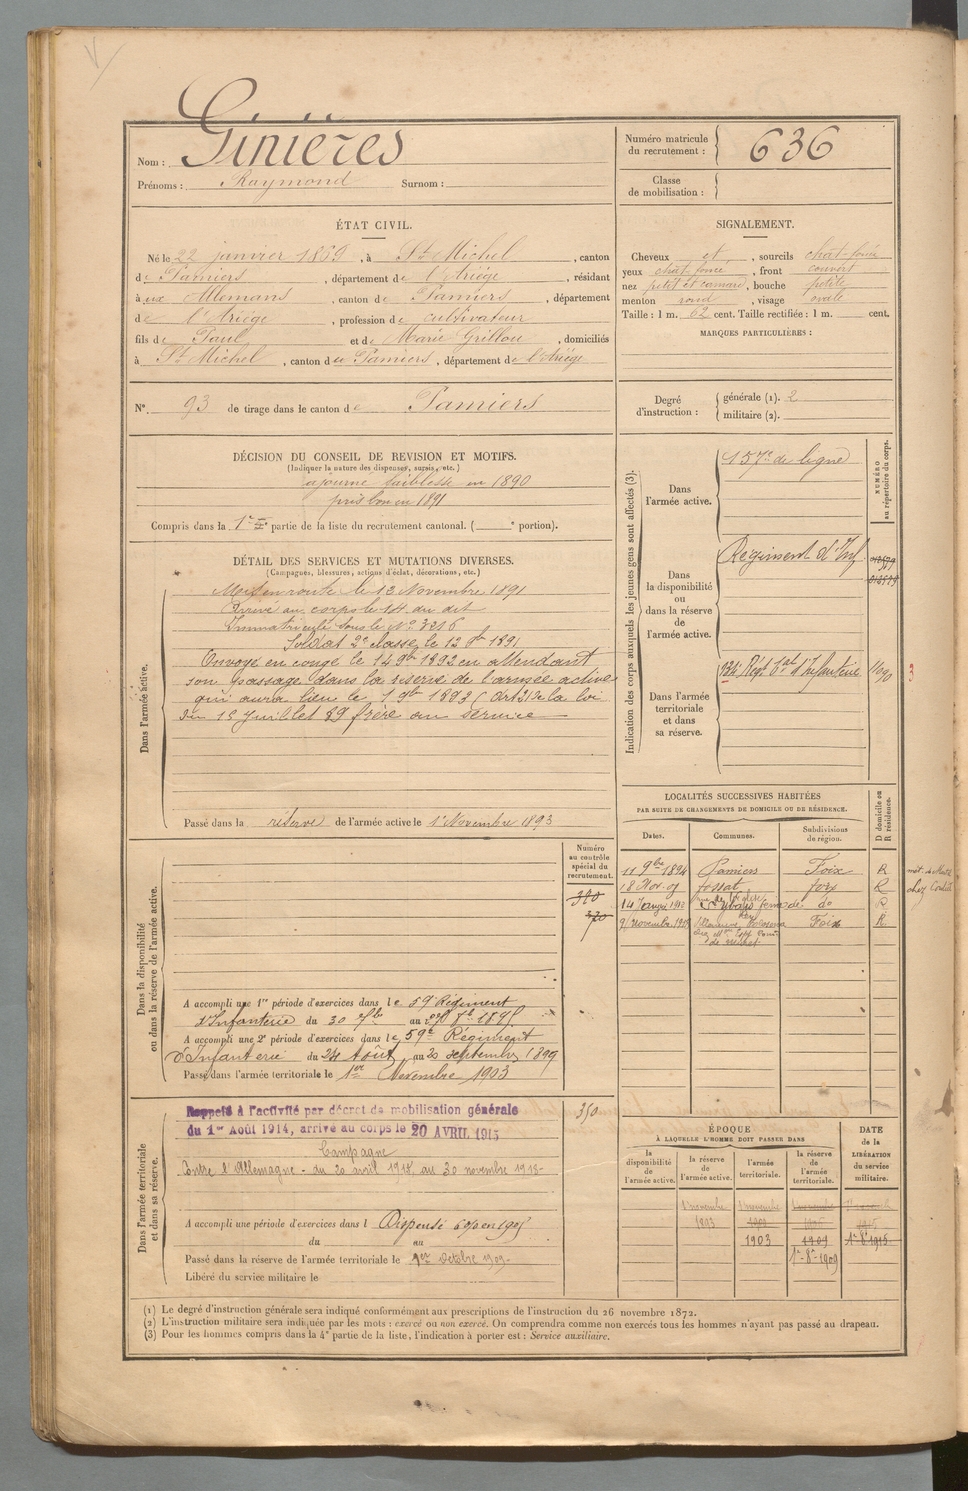 Nom : Ginières
Prénoms : Raymond Surnom :
Numéro matricule du recrutement : 636
Classe de mobilisation :
ÉTAT CIVIL.
Né le 22 janvier 1869, à St Michel, canton
de Pamiers, département de l'Ariège, résidant
à ux Allemans, canton de Pamiers, département
de l'Ariège, profession de cultivateur
fils de Paul et de Marie Grillou, domiciliés
à St Michel, canton de Pamiers, département de l'Ariège
SIGNALEMENT.
Cheveux et, sourcils chat foncé
yeux chat foncé, front couvert
nez petit et camard, bouche petite
menton rond, visage ovale
Taille : 1 m. 62 cent. Taille rectifiée : 1 m. cent.
MARQUES PARTICULIÈRES :
N° 93 de tirage dans le canton de Pamiers
Degré d'instruction : générale (1). 2
militaire (2).
DÉCISION DU CONSEIL DE REVISION ET MOTIFS.
(Indiquer la nature des dispenses, sursis, etc.)
ajourné faiblesse en 1890
pris bon en 1891
Compris dans la 1re partie de la liste du recrutement cantonal. ( e portion).
DÉTAIL DES SERVICES ET MUTATIONS DIVERSES.
(Campagnes, blessures, actions d'éclat, décorations, etc.)
Dans l'armée active.
Mis en route le 13 Novembre 1891
Arrivé au corps le 14 du dit
Immatriculé sous le N° 3216
Soldat 2e classe le 12 9b 1891
Envoyé en congé le 14 9b 1892 en attendant
son passage dans la réserve de l'armée active
qui aura lieu le 1 9b 1893 (Art 21 de la loi
du 15 Juillet 89 frère au service
Passé dans la réserve de l'armée active le 1er Novembre 1893
Indication des corps auxquels les jeunes gens sont affectés (3).
NUMÉRO au répertoire du corps.
Dans l'armée active.
157e de ligne
Dans la disponibilité ou dans la réserve de l'armée active.
Régiment d'Inf
Dans l'armée territoriale et dans sa réserve.
134e Régt tal d'Infanterie
3
LOCALITÉS SUCCESSIVES HABITÉES
PAR SUITE DE CHANGEMENTS DE DOMICILE OU DE RÉSIDENCE.
D domicile ou R résidence.
Dates. Communes. Subdivisions de région.
11 9bre 1894 Pamiers Foix R
18 Nov. 07 fossat foix R
do R
9 novembre 1913 Foix R
Numéro au contrôle spécial du recrutement.
370
370
Dans la disponibilité ou dans la réserve de l'armée active.
A accompli une 1re période d'exercices dans le 59e Régiment
d'Infanterie du 30 7bre au
A accompli une 2e période d'exercices dans le 59e Régiment
d'Infanterie du 24 Août au 20 septembre 1899
Passé dans l'armée territoriale le 1er Novembre 1903
Dans l'armée territoriale et dans sa réserve.
350
Rappelé à l'activité par décret de mobilisation générale
du 1er Août 1914, arrivé au corps le 20 AVRIL 1915
Campagne
Contre l'Allemagne - du 20 avril 1915 au 30 novembre 1918-
A accompli une période d'exercices dans l Dispensé
du au
Passé dans la réserve de l'armée territoriale le 1er octobre 1909-
Libéré du service militaire le
ÉPOQUE
À LAQUELLE L'HOMME DOIT PASSER DANS
DATE de la LIBÉRATION du service militaire.
la disponibilité de l'armée active.
la réserve de l'armée active.
l'armée territoriale.
la réserve de l'armée territoriale.
1 novembre 1 novembre
1893
1903 1904 1er 8b 1915
1er 8b 1909
(1) Le degré d'instruction générale sera indiqué conformément aux prescriptions de l'instruction du 26 novembre 1872.
(2) L'instruction militaire sera indiquée par les mots : exercé ou non exercé. On comprendra comme non exercés tous les hommes n'ayant pas passé au drapeau.
(3) Pour les hommes compris dans la 4e partie de la liste, l'indication à porter est : Service auxiliaire.